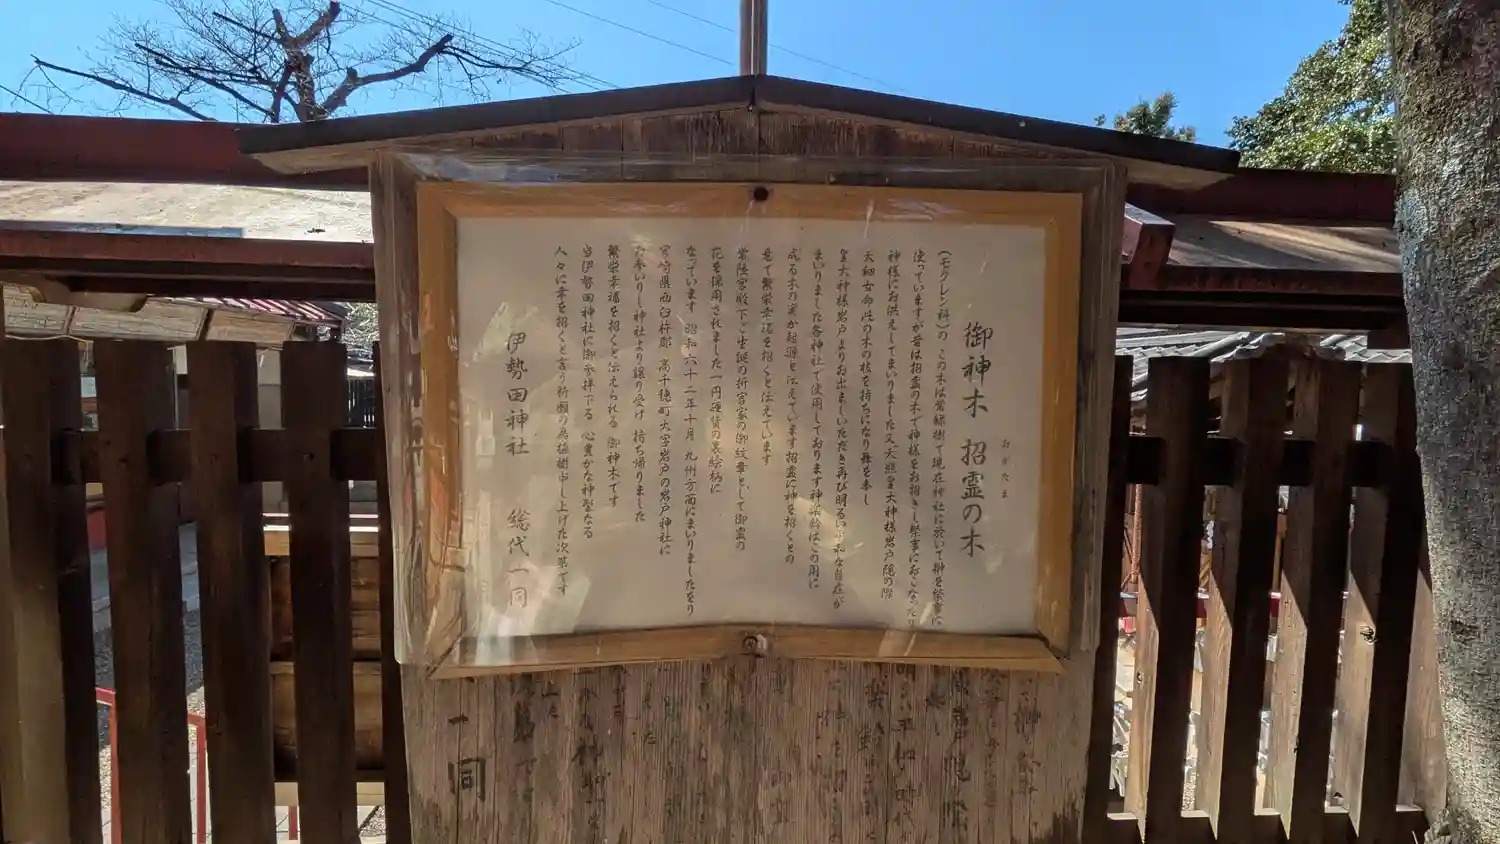 御神木 招霊の木
おがたま
(モクレン科)の この木は常緑樹で現在神社に於いて榊を祭事に
使っていますが昔は招霊の木で神様をお招きし祭事におこなったり
神様にお供えしてまいりました又天照皇大神様岩戸隠の際
天細女命此の木の枝を持ちになり舞を奉し
皇大神様岩戸よりお出ましいただき再び明るい平和な自在が
まいりました各神社で使用しております神楽鈴はこの用に
成る木の実が起源と伝えています招霊に神を招くとの
意で繁栄幸福を招くと伝えています
常陸宮殿下ご生誕の折宮家の御紋章として御霊の
花を採用されました一円硬貨の裏絵柄に
なっています 昭和六十二年十月 九州方面にまいりましたをり
宮崎県西臼杵郡 高千穂町大字岩戸の岩戸神社に
お参いりし神社より譲り受け 持ち帰りました
繁栄幸福を招くと伝えられる 御神木です
当伊勢田神社に御参拝下る 心豊かな神聖なる
人々に幸を招くと言う祈願の為植樹申し上げた次第です
伊勢田神社 総代一同
一同